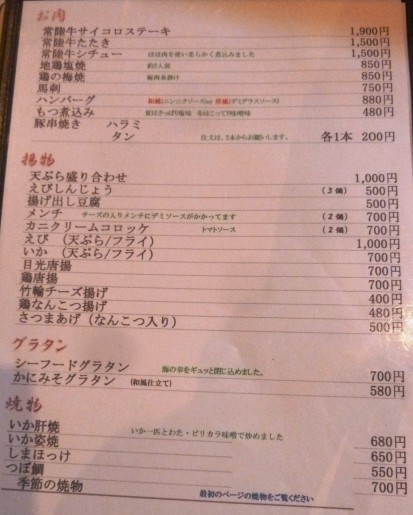 お肉
常陸牛サイコロステーキ 1,900円
常陸牛たたき 1,500円
常陸牛シチュー ほほ肉を使い柔らかく煮込みました 1,500円
地鶏塩焼 約2人前 850円
鶏の梅焼 梅肉添掛け 850円
馬刺 750円
ハンバーグ 和風(ニンニクソース)or 洋風(デミグラスソース) 880円
もつ煮込み 夏はさっぱり塩味 冬はこってり味噌味 480円
豚串焼き ハラミ
タン 注文は、2本からお願いします。 各1本 200円
揚物
天ぷら盛り合わせ 1,000円
えびしんじょう (3個) 500円
揚げ出し豆腐 500円
メンチ チーズの入りメンチにデミソースがかかってます (2個) 700円
カニクリームコロッケ トマトソース (2個) 700円
えび (天ぷら/フライ) 1,000円
いか (天ぷら/フライ) 700円
目光唐揚 700円
鶏唐揚 700円
竹輪チーズ揚げ 400円
鶏なんこつ揚げ 480円
さつまあげ(なんこつ入り) 500円
グラタン
シーフードグラタン 海の幸をギュッと閉に込めました。 700円
かにみそグラタン (和風仕立て) 580円
焼物
いか肝焼 いか一匹とわた・ピリカラ味噌で炒めました
いか姿焼 680円
しまほっけ 650円
つぼ鯛 550円
季節の焼物 最初のページの焼物をご覧ください 700円